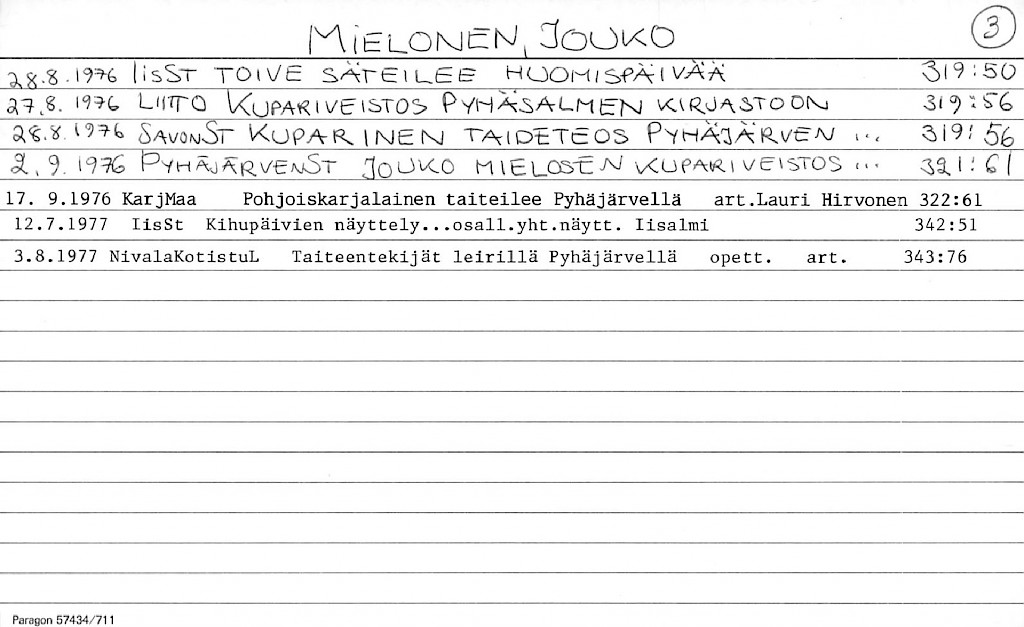 MIELONEN, JOUKO 3
28.8.1976 IisST TOIVE SÄTEILEE HUOMISPÄIVÄÄ 319:50
27.8.1976 LIITTO KUPARIVEISTOS PYHÄSALMEN KIRJASTOON 319:56
28.8.1976 SAVONST KUPARINEN TAIDETEOS PYHÄJÄRVEN ... 319:56
2.9.1976 PYHÄJÄRVENST JOUKO MIELOSEN KUPARIVEISTOS ... 321:61
17. 9.1976 KarjMaa Pohjoiskarjalainen taiteilee Pyhäjärvellä art.Lauri Hirvonen 322:61
12.7.1977 IisSt Kihupäivien näyttely...osall.yht.näytt. Iisalmi 342:51
3.8.1977 NivalaKotistuL Taiteentekijät leirillä Pyhäjärvellä opett. art. 343:76
Paragon 57434/711